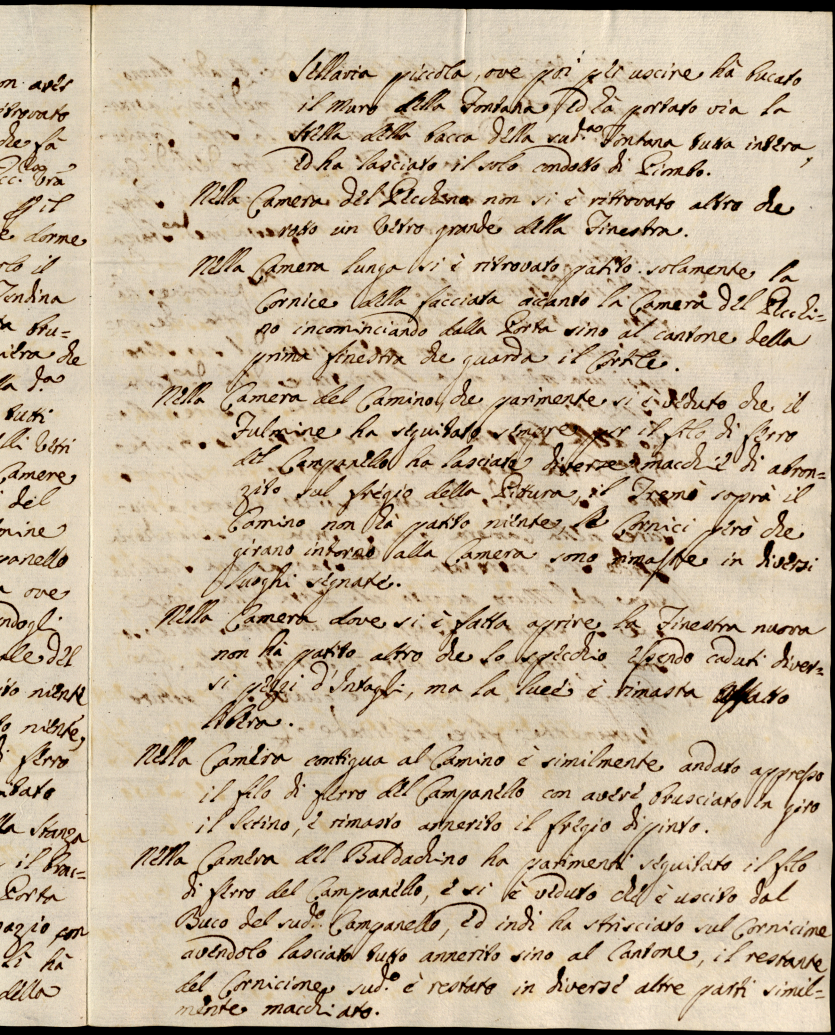 on aver
itrovato
che fà
il
e dorme
rlo il
Tendina
ta bru=
niera che
lla da
tutti
lli Vetri
Camere
i del
mine
panello
a ove
ndogli
ale del
ito niente
to niente,
di ferro
mbato
lla stanza
, il brac=
Porta
pazio con
li hà
della
Sellaria piccola, ove poi per uscire hà bucato
il Muro della Fontana, ed hà portato via la
Stella della bocca della sud.ª Fontana tutta intera,
ed ha lasciato il solo condotto di Piombo.
Nella Camera del Picchino non si è ritrovato altro che
rotto un Vetro grande della Finestra.
Nella Camera lunga si è ritrovato patito solamente la
Cornice della facciata accanto la Camera del Picchi=
no incominciando dalla Porta sino al cantone della
prima finestra che guarda il Cortile.
Nella Camera del Camino, che parimente si è veduto che il
Fulmine ha seguitato sempre per il filo di ferro
del Campanello ha lasciato diverse macchie di abron=
zito sul fregio della Pittura, il Tremò sopra il
Camino non hà patito niente, le Cornici però che
girano intorno alla Camera sono rimaste in diversi
luoghi segnate.
Nella Camera dove si è fatta aprire la Finestra nuova
non hà patito altro che lo specchio essendo caduti diver=
si pezzi d'Intagli, ma la luce è rimasta affatto
libera.
Nella Camera contigua al Camino è similmente andato appresso
il filo di ferro del Campanello con avere brusciato in giro
il Setino, e rimasto annerito il fregio dipinto.
Nella Camera del Baldachino ha parimenti seguitato il filo
di ferro del Campanello, e si è veduto che è uscito dal
Buco del sud.º Campanello, ed indi ha strisciato sul Cornicione
avendolo lasciato tutto annerito sino al Cantone, il restante
del Cornicione sud.º è restato in diverse altre parti simil=
mente macchiato.